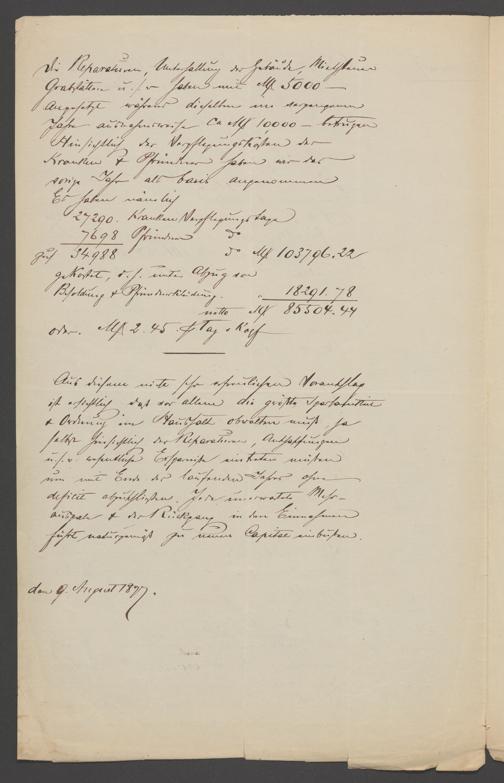 Die Reparaturen, Unterhaltung der Gebäude, Miethsteuer
Gratifikationen u.s.w haben mit M 5000 –
angesetzt während dieselben im vergangenen
Jahre ausnahmsweise Ca M 10,000 – betrugen
Hinsichtlich der Verpflegungskosten der
Kranken & Pfründner haben wir das
vorige Jahr als basis angenommen
Es haben nämlich
27290. Kranken Verpflegungstage
7698 Pfründner do
34988 do M 103796.22
gekostet, d.h. unter Abzug von
Besoldung & Pfründnerkleidung. 18291.78
netto M 85504.44
oder M 2.45. p Tag & Kopf
Aus diesem nicht sehr erfreulichen Voranschlag
ist ersichtlich, daß vor allem die größte Sparsamkeit
& Ordnung im Haushalt obwalten muß ja
selbst hinsichtlich der Reparaturen, Anschaffungen
u.s.w wesentliche Ersparniß eintreten müssen
um mit Ende des laufenden Jahres ohne
deficit abzuschließen. Jede unerwartete Mehr-
ausgabe & der Rückgang in den Einnahmen
führt naturgemäß zu neuen Capital einbußen.
den 9. August 1897.